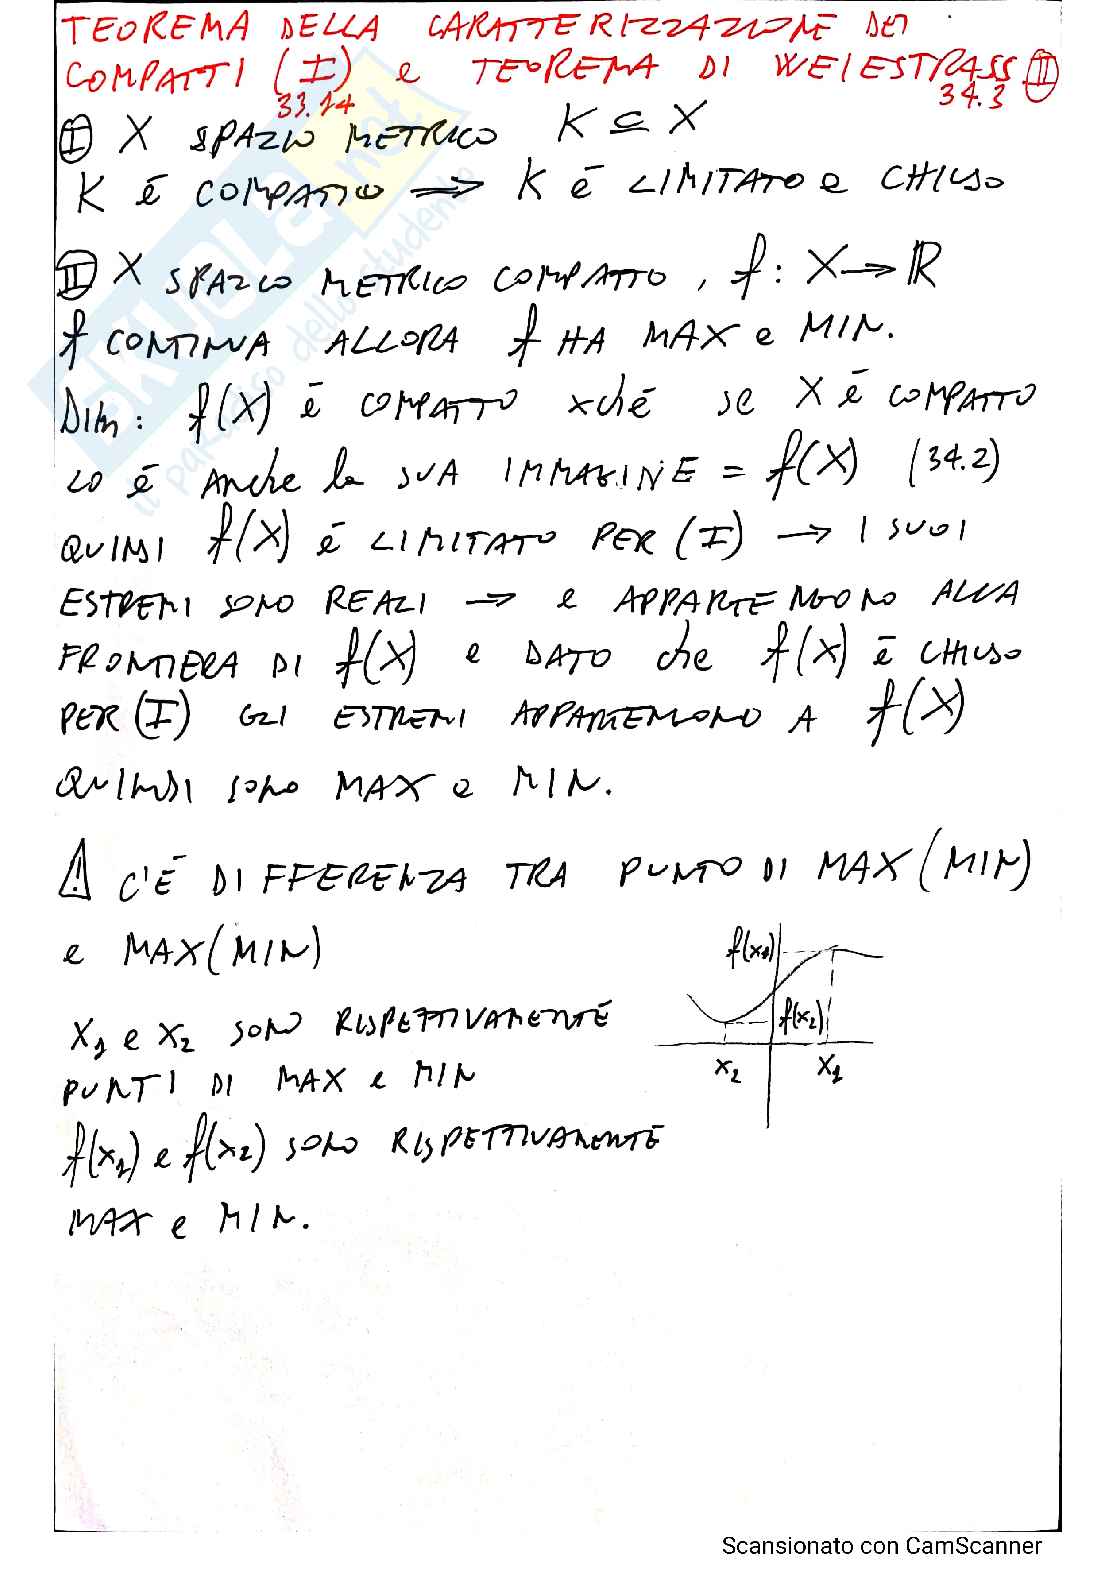 TEOREMA DELLA CARATTERIZZAZIONE DEI
COMPATTI (I) e TEOREMA DI WEIESTRASS (II)
33.14 34.3
(I) X SPAZIO METRICO K ⊆ X
K È COMPATTO ⟹ K È LIMITATO e CHIUSO
(II) X SPAZIO METRICO COMPATTO, f: X → ℝ
f CONTINUA ALLORA f HA MAX e MIN.
Dim: f(X) È COMPATTO xché se X È COMPATTO
LO È ANche la SUA IMMAGINE = f(X) (34.2)
QUINDI f(X) È LIMITATO PER (I) → I SUOI
ESTREMI SONO REALI → e APPARTENGONO ALLA
FRONTIERA DI f(X) e DATO che f(X) È CHIUSO
PER (I) GLI ESTREMI APPARTENGONO A f(X)
QUINDI SONO MAX e MIN.
⚠ C'È DIFFERENZA TRA PUNTO DI MAX (MIN)
e MAX (MIN)
f(x1)
f(x2)
x2 x1
X1 e X2 SONO RISPETTIVAMENTE
PUNTI DI MAX e MIN
f(x1) e f(x2) SONO RISPETTIVAMENTE
MAX e MIN.
SKUOLA.net
il paradiso dello studente
Scansionato con CamScanner